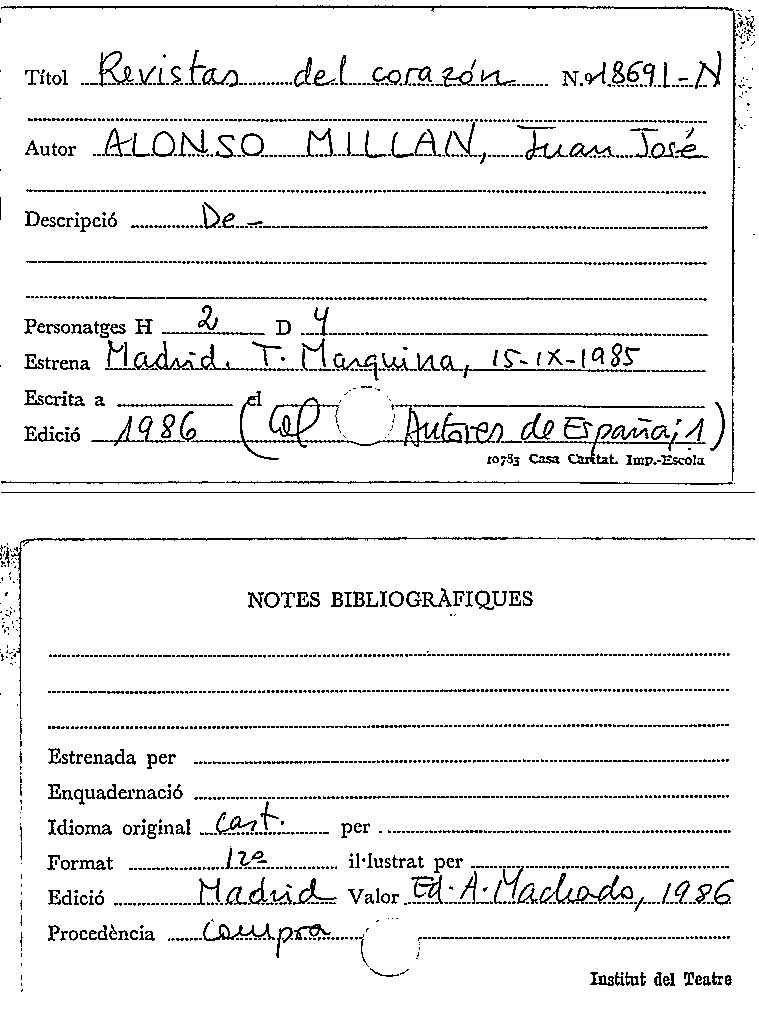 Títol Revistas del corazón N.º 18691-N
Autor ALONSO MILLAN, Juan José
Descripció De -
Personatges H 2 D 4
Estrena Madrid. T. Marquina, 15-IX-1985
Escrita a el
Edició 1986 (Col Autores de España; 1)
10783 Casa Caritat. Imp.-Escola
NOTES BIBLIOGRÀFIQUES
Estrenada per
Enquadernació
Idioma original Cast. per
Format 12º il·lustrat per
Edició Madrid Valor Ed. A. Machado, 1986
Procedència Compra
Institut del Teatre